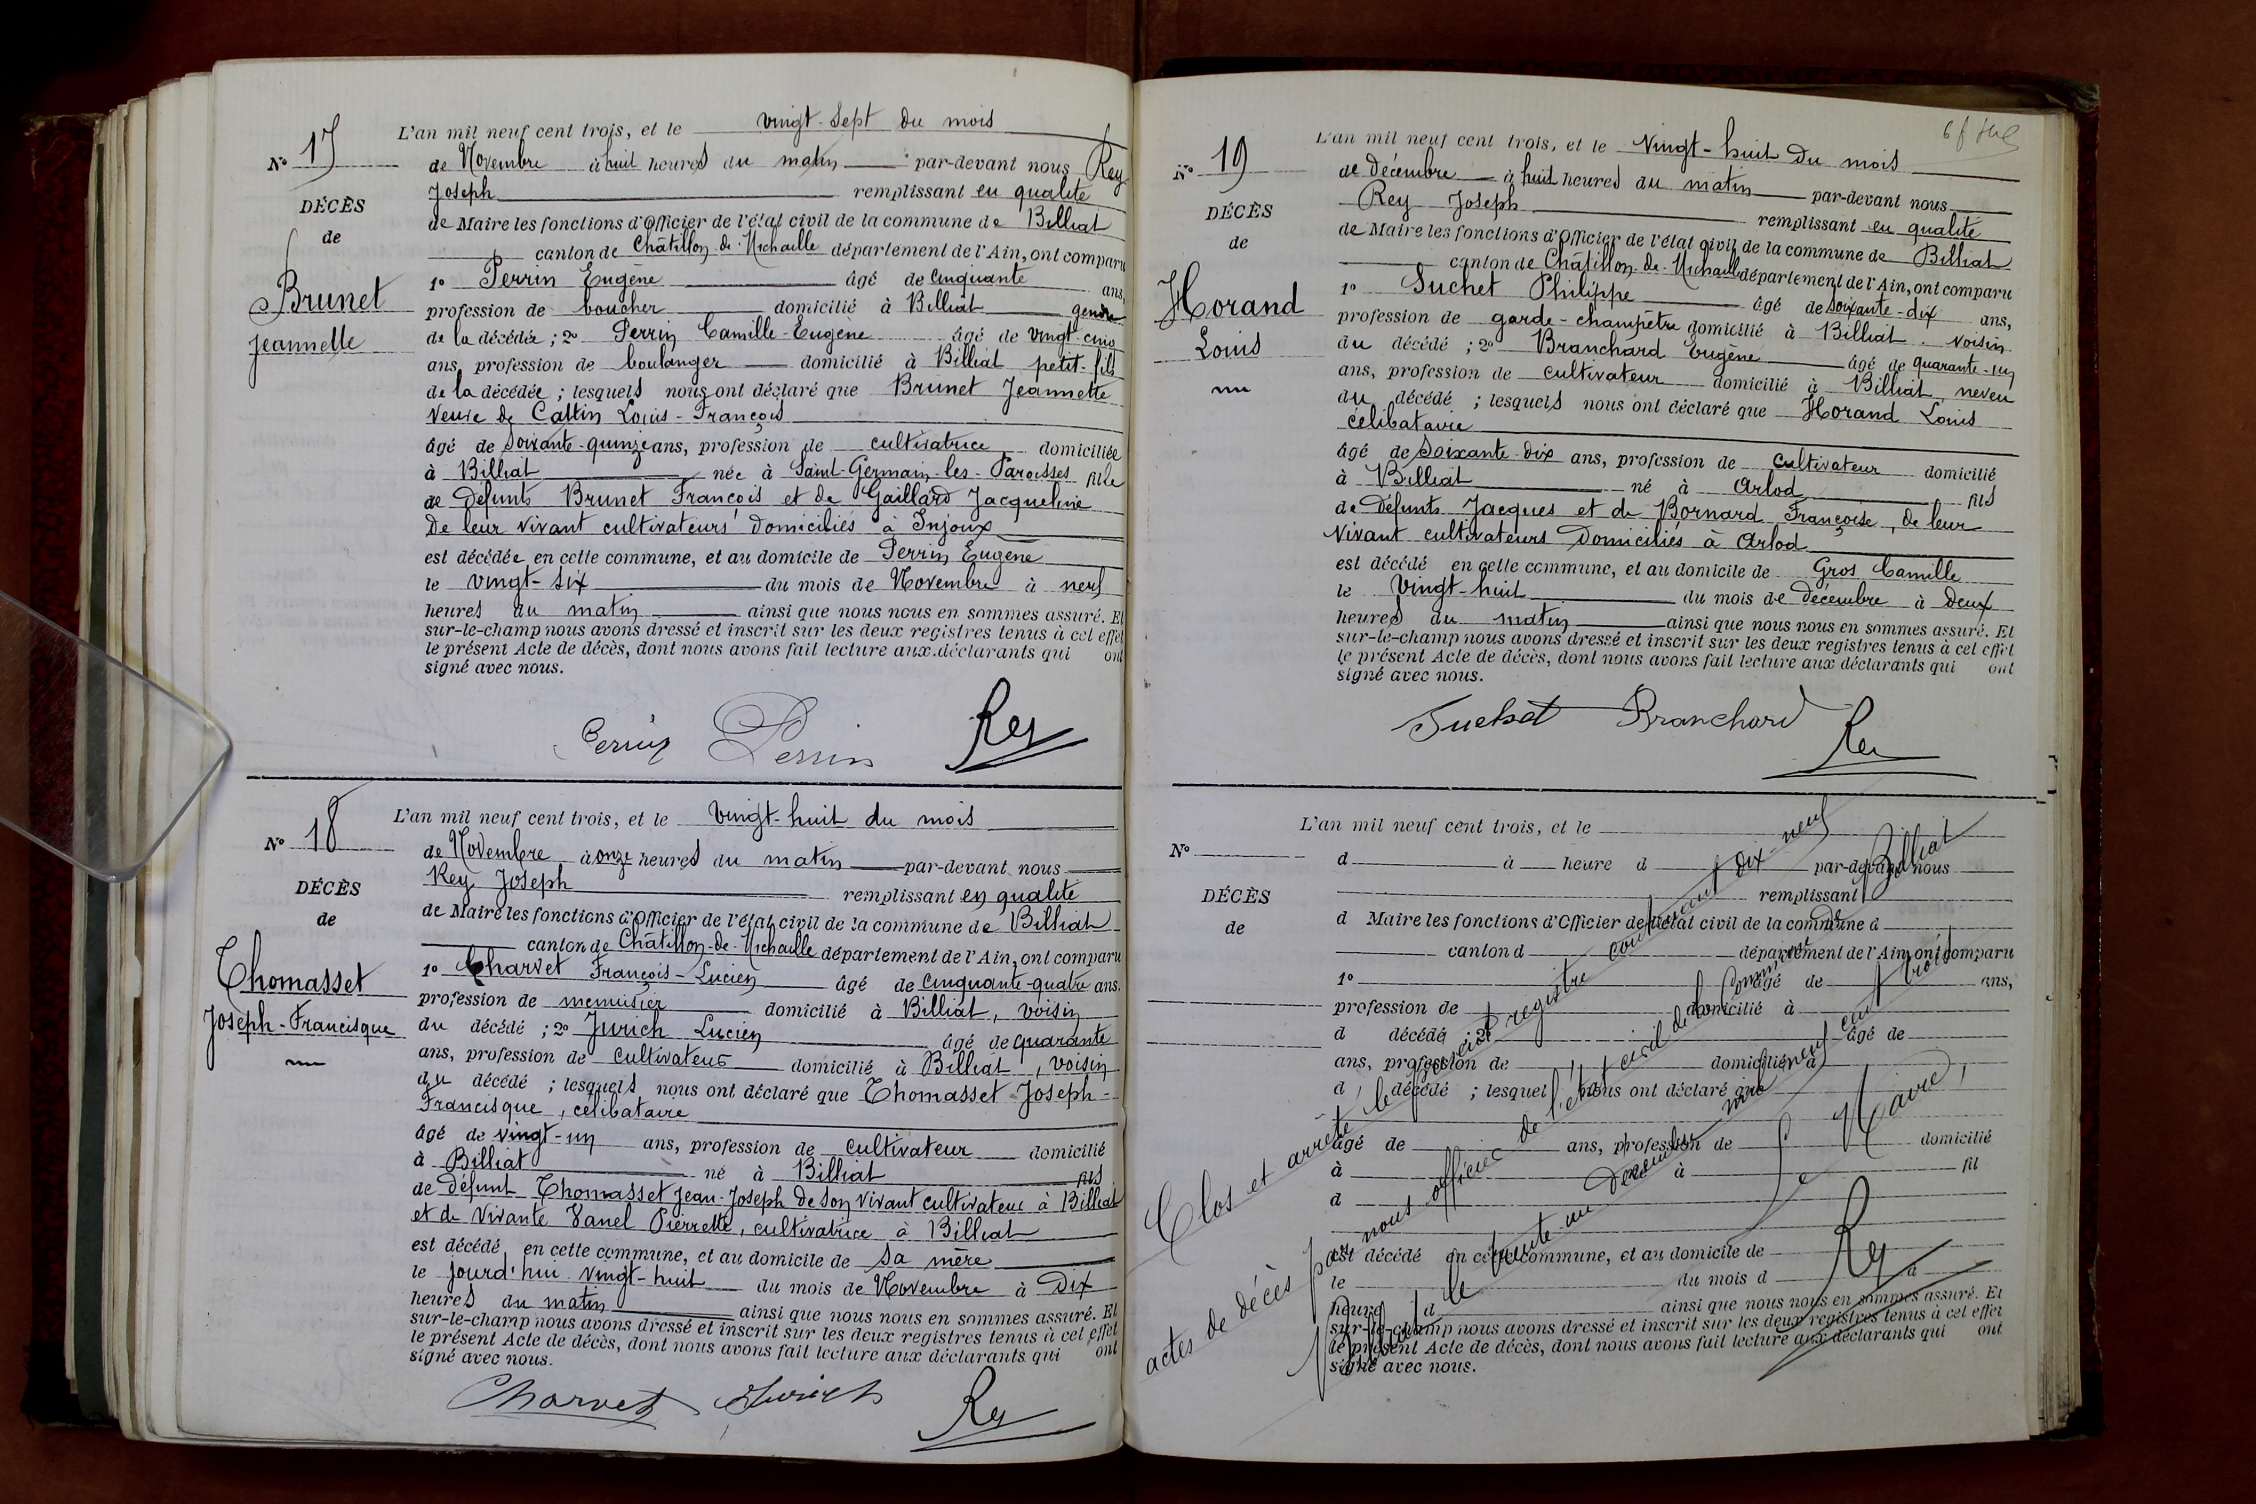 L'an mil neuf cent trois, et le vingt-sept du mois
N° 17
de Novembre à huit heures du matin par-devant nous Rey
Joseph remplissant en qualité
DÉCÈS
de Maire les fonctions d'Officier de l'état civil de la commune de Billiat
de
canton de Châtillon-de-Michaille département de l'Ain, ont comparu
1° Perrin Eugène âgé de cinquante ans,
Brunet
profession de boucher domicilié à Billiat gendre
Jeannette
de la décédée ; 2° Perrin Camille-Eugène âgé de vingt-cinq
ans, profession de boulanger domicilié à Billiat petit-fils
de la décédée ; lesquels nous ont déclaré que Brunet Jeannette
veuve de Cattin Louis-François
âgé de soixante-quinze ans, profession de cultivatrice domiciliée
à Billiat née à Saint-Germain-les-Paroisses fille
de défunts Brunet François et de Gaillard Jacqueline
de leur vivant cultivateurs domiciliés à Injoux
est décédée en cette commune, et au domicile de Perrin Eugène
le vingt-six du mois de Novembre à neuf
heures du matin ainsi que nous nous en sommes assuré. Et
sur-le-champ nous avons dressé et inscrit sur les deux registres tenus à cet effet
le présent Acte de décès, dont nous avons fait lecture aux déclarants qui ont
signé avec nous.
Perrin Perrin Rey
L'an mil neuf cent trois, et le vingt-huit du mois
N° 18
de Novembre à onze heures du matin par-devant nous
Rey Joseph remplissant en qualité
DÉCÈS
de Maire les fonctions d'Officier de l'état civil de la commune de Billiat
de
canton de Châtillon-de-Michaille département de l'Ain, ont comparu
1° Charvet François-Lucien âgé de cinquante-quatre ans.
Thomasset
profession de menuisier domicilié à Billiat, voisin
Joseph-Francisque
du décédé ; 2° Jurich Lucien âgé de quarante
ans, profession de cultivateur domicilié à Billiat, voisin
du décédé ; lesquels nous ont déclaré que Thomasset Joseph-
Francisque, célibataire
âgé de vingt-un ans, profession de cultivateur domicilié
à Billiat né à Billiat fils
de défunt Thomasset Jean-Joseph de son vivant cultivateur à Billiat
et de vivante Vanel Pierrette, cultivatrice à Billiat
est décédé en cette commune, et au domicile de sa mère
le jourd'hui vingt-huit du mois de Novembre à dix
heures du matin ainsi que nous nous en sommes assuré. Et
sur-le-champ nous avons dressé et inscrit sur les deux registres tenus à cet effet
le présent Acte de décès, dont nous avons fait lecture aux déclarants qui ont
signé avec nous.
Charvet Jurich Rey
L'an mil neuf cent trois, et le vingt-huit du mois
N° 19
de décembre à huit heures du matin par-devant nous
Rey Joseph remplissant en qualité
DÉCÈS
de Maire les fonctions d'Officier de l'état civil de la commune de Billiat
de
canton de Châtillon-de-Michaille département de l'Ain, ont comparu
1° Suchet Philippe âgé de soixante-dix ans,
Horand
profession de garde-champêtre domicilié à Billiat. voisin
Louis
du décédé ; 2° Branchard Eugène âgé de quarante-un
ans, profession de cultivateur domicilié à Billiat, neveu
du décédé ; lesquels nous ont déclaré que Horand Louis
célibataire
âgé de soixante-dix ans, profession de cultivateur domicilié
à Billiat né à Arlod fils
de défunts Jacques et de Bornard Françoise, de leur
vivant cultivateurs domiciliés à Arlod
est décédé en cette commune, et au domicile de Gros Camille
le vingt-huit du mois de décembre à deux
heures du matin ainsi que nous nous en sommes assuré. Et
sur-le-champ nous avons dressé et inscrit sur les deux registres tenus à cet effet
le présent Acte de décès, dont nous avons fait lecture aux déclarants qui ont
signé avec nous.
Suchet Branchard Rey
L'an mil neuf cent trois, et le
N°
d à heure d par-devant nous
remplissant
DÉCÈS
d Maire les fonctions d'Officier de l'état civil de la commune d
de
canton d département de l'Ain, ont comparu
1° âgé de ans,
profession de domicilié à
d décédé ; 2° âgé de
ans, profession de domicilié à
d décédé ; lesquel nous ont déclaré que
âgé de ans, profession de domicilié
à né à fil
d
est décédé en cette commune, et au domicile de
le du mois d à
heure d ainsi que nous nous en sommes assuré. Et
sur-le-champ nous avons dressé et inscrit sur les deux registres tenus à cet effet
le présent Acte de décès, dont nous avons fait lecture aux déclarants qui ont
signé avec nous.
Clos et arrêté le présent registre contenant dix-neuf
actes de décès par nous officier de l'état civil de la commune de Billiat
Billiat le trente un décembre mil neuf cent trois
Le Maire,
Rey